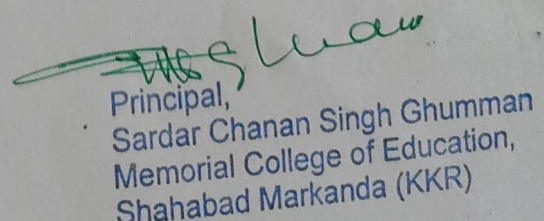 Principal,
Sardar Chanan Singh Ghumman
Memorial College of Education,
Shahabad Markanda (KKR)